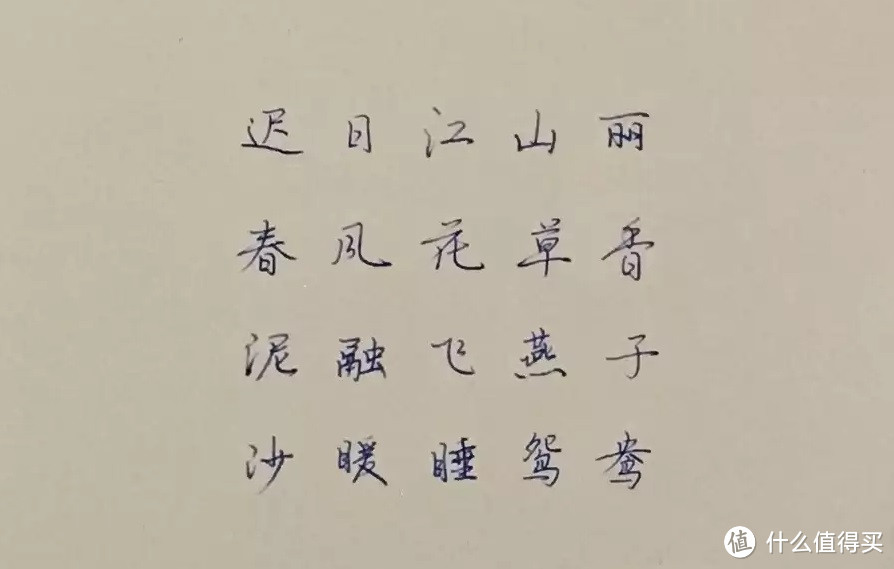 迟日江山丽
春风花草香
泥融飞燕子
沙暖睡鸳鸯
值 什么值得买